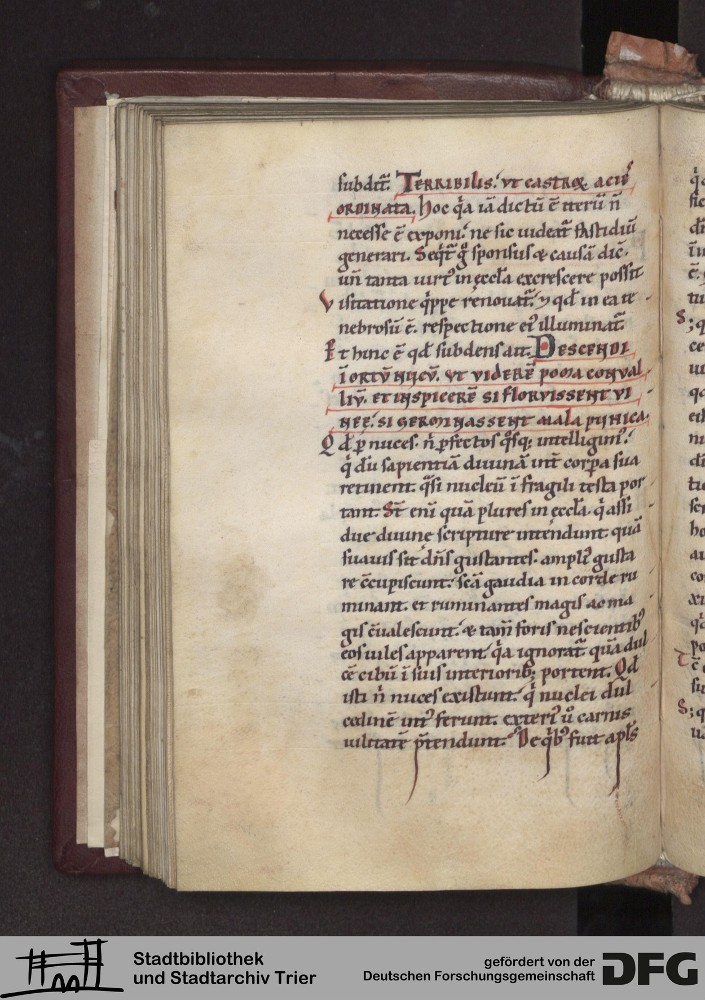 subdit̄. Terribilis. ut castroꝝ acies
ordinata. Hoc q̇a iā dictū ē iterū n̄
necesse ē exponi. ne sic uideat̄ fastidiū
generari. Seqt̄ g̊ sponsus & causā dic̄.
un̄ tanta uirt᷒ in ęccła excrescere possit
Visitatione q̇ppe renouat̄. ⁊ qd̄ in ea te
nebrosū ē. respectione ei᷒ illuminat̄.
Et hinc ē qd̄ subdens ait. Descendi
ī ortū nucū. ut viderē poma conval
liū. et inspicerē si floruissent vi
neę. si germinassent mala punica.
Qd̄ ꝑ nuces. n̄ ꝑfectos q̊sq; intelligim᷒.
q̇ dū sapientiā diuinā int̄ corꝑa sua
retinent. q̊si nucleū ī fragili testa por
tant. St̄ eni quā plures in ęccła. q̇ assi
due diuine scripture intendunt. quā
suauis sit dn̄s gustantes. ampli᷒ gusta
re c̄cupiscunt. sc̄a gaudia in corde ru
minant. et ruminantes magis ac ma
gis c̄ualescunt. & tam̄ foris nescientib᷒
eos uiles apparent. q̇a ignorat̄ quā dul
cē cibū ī suis interiorib; portent. Qd̄
isti n̄ nuces existunt. q̇ nuclei dul
cedinē int᷒ ferunt. exteri᷒ ů carnis
uilitatē p̄tendunt. De q̇b᷒ fuit apłs
Stadtbibliothek
und Stadtarchiv Trier
gefördert von der
Deutschen Forschungsgemeinschaft
DFG